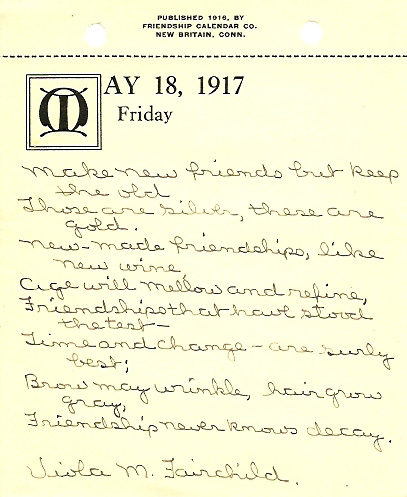 PUBLISHED 1916, BY
FRIENDSHIP CALENDAR CO.
NEW BRITAIN, CONN.
MAY 18, 1917
Friday
Make new friends but keep
the old
Those are silver, these are
gold.
New-made friendships, like
new wine,
Age will mellow and refine,
Friendships that have stood
the test—
Time and change – are surly
best;
Brow may wrinkle, hair grow
gray,
Friendship never knows decay.
Viola M. Fairchild.